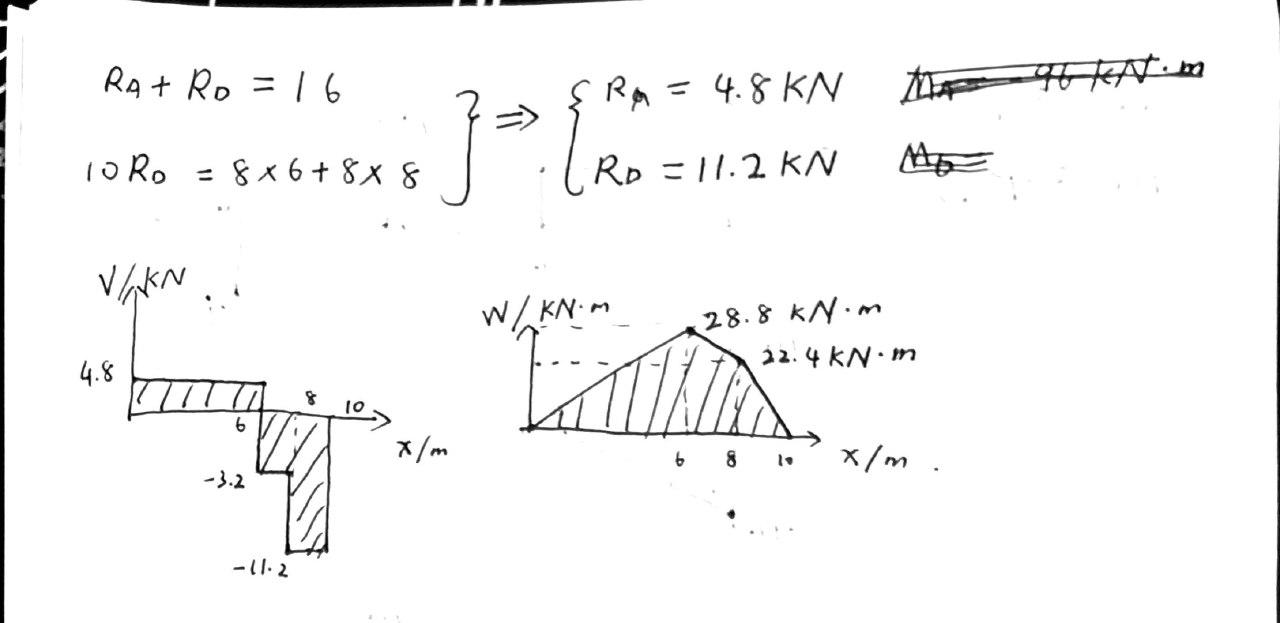 RA + RD = 16
10RD = 8×6+8×8
} ⇒ {
RA = 4.8 KN
RD = 11.2 KN
MA = 96 kN·m
MD =
V/KN
4.8
6
8
10
x/m
-3.2
-11.2
W/KN·m
28.8 kN·m
22.4 KN·m
6 8 10 x/m .